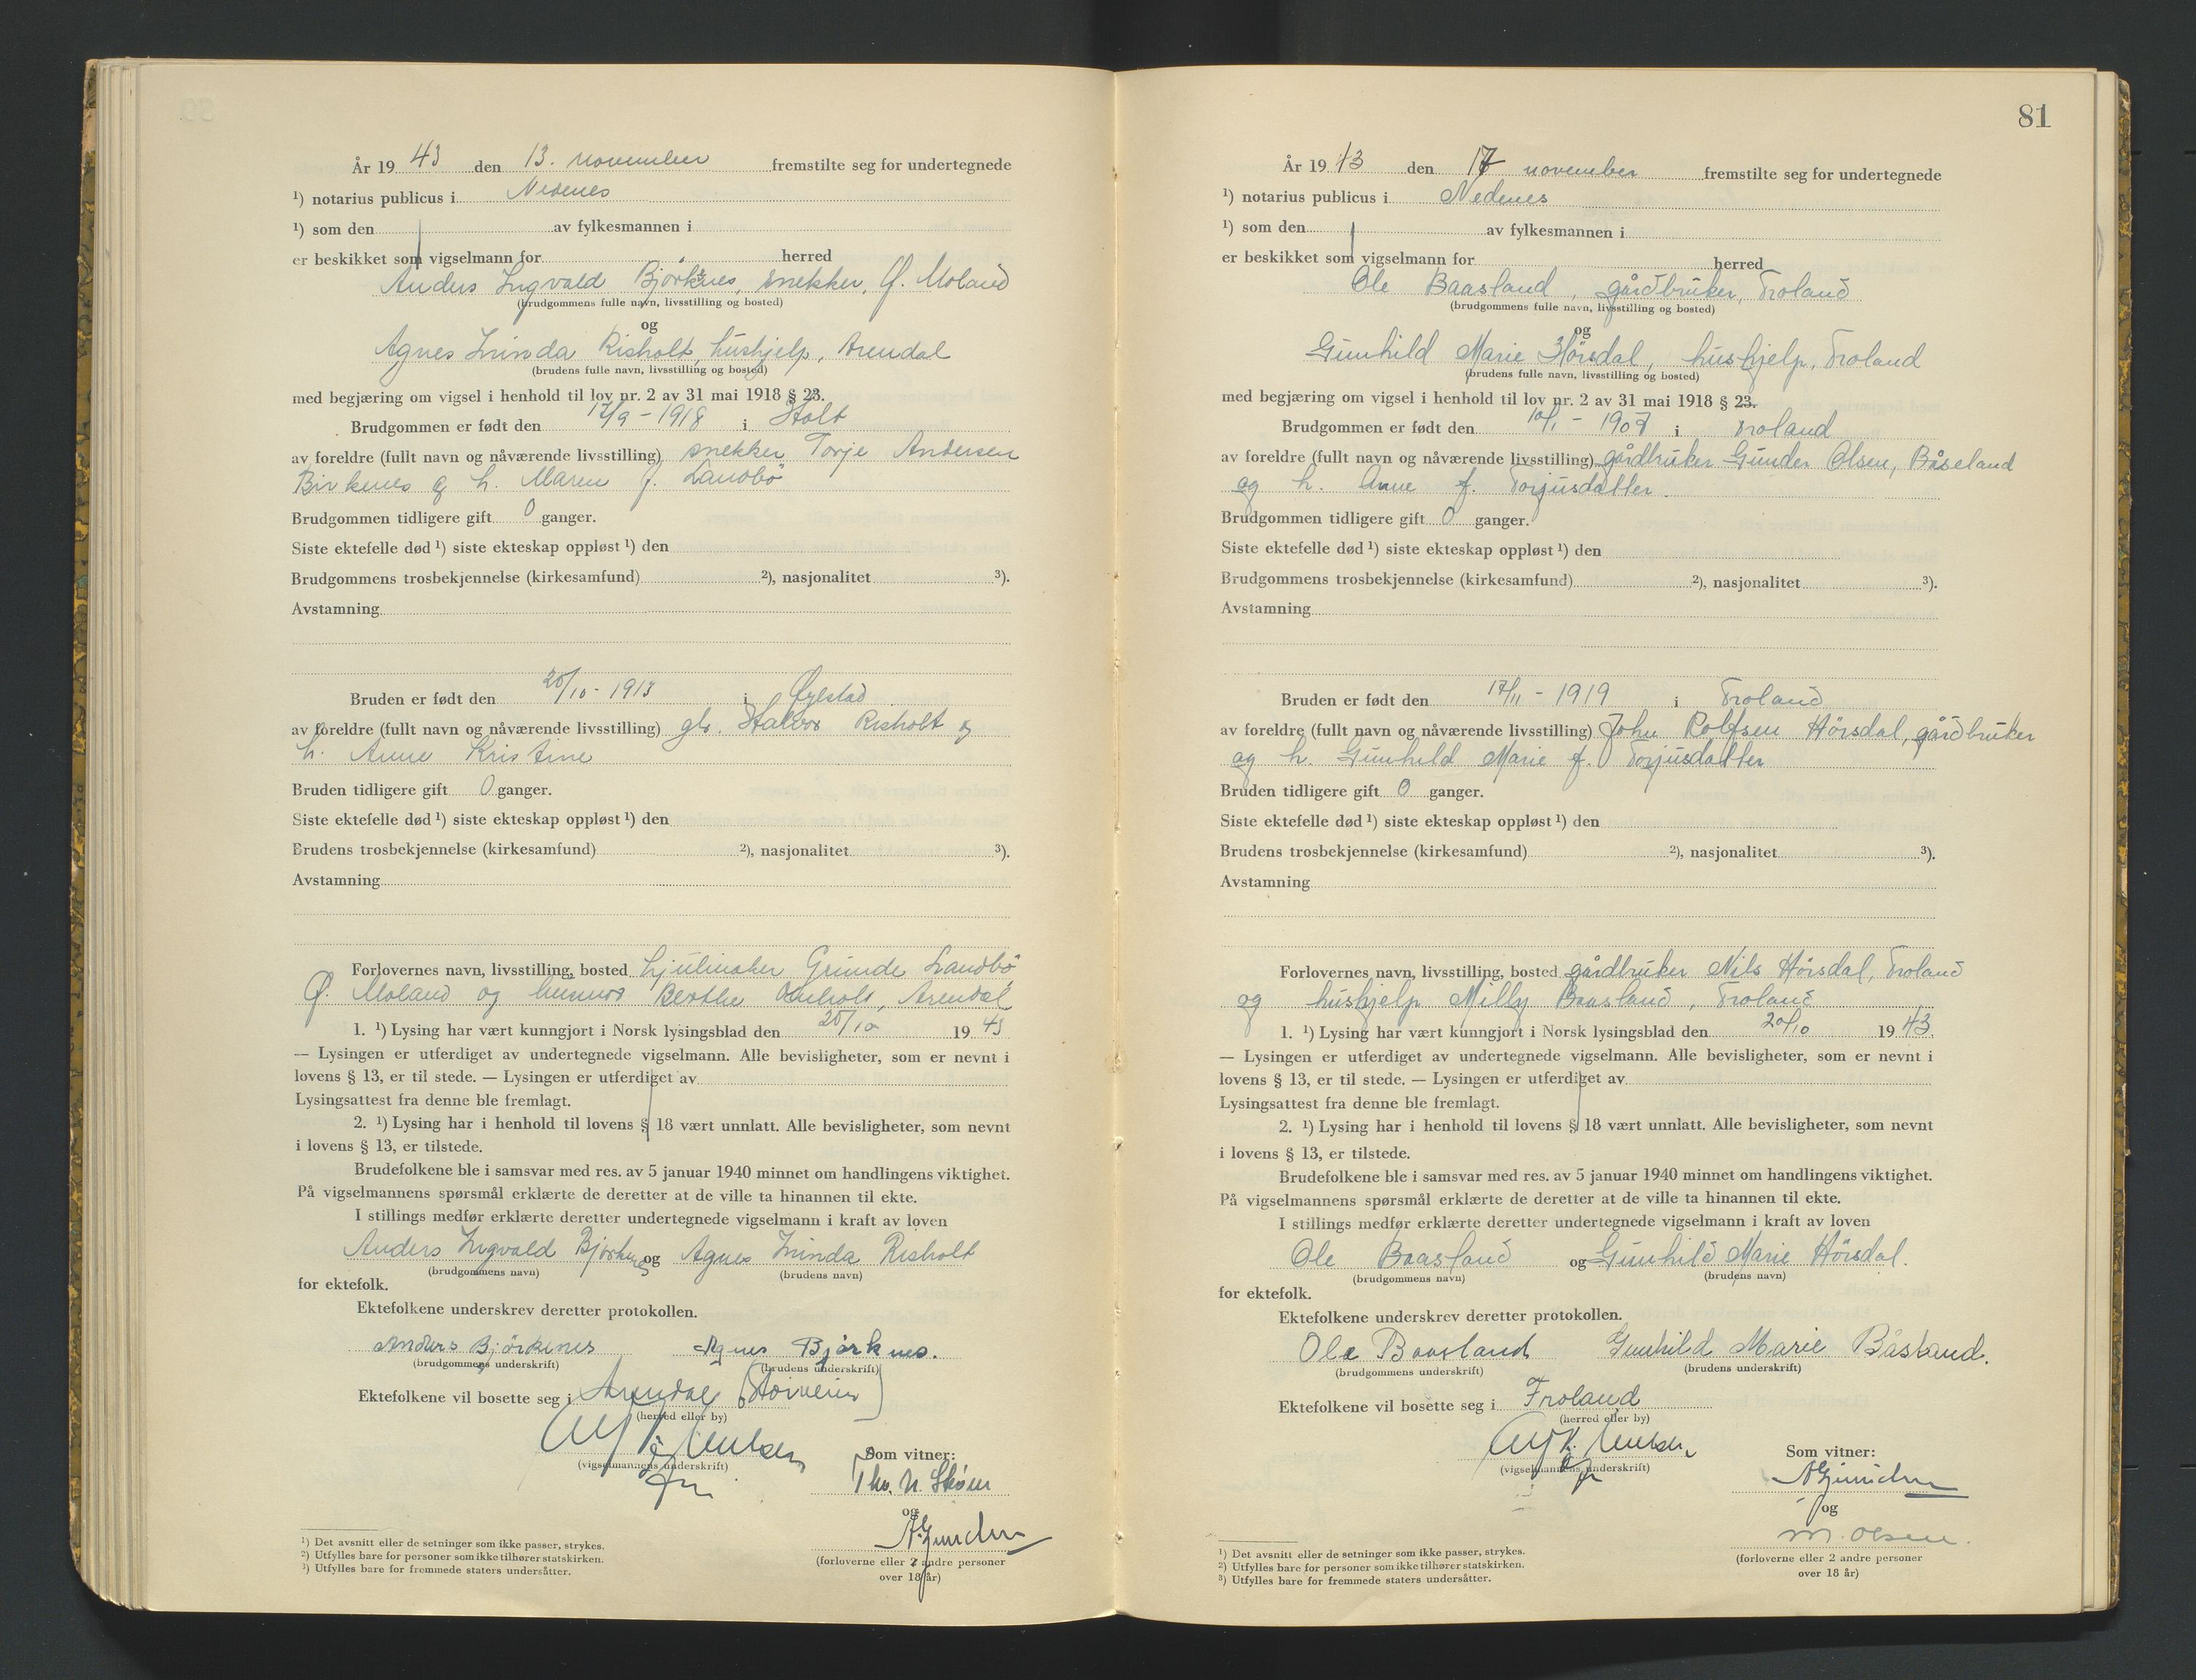 År 19 43 den 13. november fremstilte seg for undertegnede
¹) notarius publicus i Nedenes
¹) som den av fylkesmannen i
er beskikket som vigselmann for herred
Anders Ingvald Bjørknes, snekker, Ø. Moland
(brudgommens fulle navn, livsstilling og bosted)
og
Agnes Irinda Risholt, hushjelp, Arendal
(brudens fulle navn, livsstilling og bosted)
med begjæring om vigsel i henhold til lov nr. 2 av 31 mai 1918 § 23.
Brudgommen er født den 17/9 - 1918 i Holt
av foreldre (fullt navn og nåværende livsstilling) snekker Torje Andersen
Birkenes og h. Maren f. Landbö
Brudgommen tidligere gift 0 ganger.
Siste ektefelle død ¹) siste ekteskap oppløst ¹) den
Brudgommens trosbekjennelse (kirkesamfund) ²), nasjonalitet ³).
Avstamning
Bruden er født den 20/10 - 1913 i Øyestad
av foreldre (fullt navn og nåværende livsstilling) gbr. Halvor Risholt og
h. Anne Kristine
Bruden tidligere gift 0 ganger.
Siste ektefelle død ¹) siste ekteskap oppløst ¹) den
Brudens trosbekjennelse (kirkesamfund) ²), nasjonalitet ³).
Avstamning
Forlovernes navn, livsstilling, bosted hjulmaker Grunde Landbö
Ø. Moland og Berthe Arendal
1. ¹) Lysing har vært kunngjort i Norsk lysingsblad den 20/10 19 43
— Lysingen er utferdiget av undertegnede vigselmann. Alle bevisligheter, som er nevnt i
lovens § 13, er til stede. — Lysingen er utferdiget av
Lysingsattest fra denne ble fremlagt.
2. ¹) Lysing har i henhold til lovens § 18 vært unnlatt. Alle bevisligheter, som nevnt
i lovens § 13, er tilstede.
Brudefolkene ble i samsvar med res. av 5 januar 1940 minnet om handlingens viktighet.
På vigselmannens spørsmål erklærte de deretter at de ville ta hinannen til ekte.
I stillings medfør erklærte deretter undertegnede vigselmann i kraft av loven
Anders Ingvald Bjørknes og Agnes Irinda Risholt
(brudgommens navn) (brudens navn)
for ektefolk.
Ektefolkene underskrev deretter protokollen.
Anders Bjørknes Agnes Bjørknes.
(brudgommens underskrift) (brudens underskrift)
Ektefolkene vil bosette seg i Arendal
(herred eller by)
(vigselmannens underskrift) Som vitner:
Tho. N. Sköm
og
A Gunder
¹) Det avsnitt eller de setninger som ikke passer, strykes.
²) Utfylles bare for personer som ikke tilhører statskirken.
³) Utfylles bare for fremmede staters undersåtter.
(forloverne eller 2 andre personer
over 18 år)
81
År 19 43 den 17 november fremstilte seg for undertegnede
¹) notarius publicus i Nedenes
¹) som den av fylkesmannen i
er beskikket som vigselmann for herred
Ole Baasland, gårdbruker, Froland
(brudgommens fulle navn, livsstilling og bosted)
og
Gunhild Marie Hörsdal, hushjelp, Froland
(brudens fulle navn, livsstilling og bosted)
med begjæring om vigsel i henhold til lov nr. 2 av 31 mai 1918 § 23.
Brudgommen er født den 10/1 - 1907 i Froland
av foreldre (fullt navn og nåværende livsstilling) gårdbruker Gunder Olsen, Båseland
og h. Anne f. Torjusdatter.
Brudgommen tidligere gift 0 ganger.
Siste ektefelle død ¹) siste ekteskap oppløst ¹) den
Brudgommens trosbekjennelse (kirkesamfund) ²), nasjonalitet ³).
Avstamning
Bruden er født den 17/11 - 1919 i Froland
av foreldre (fullt navn og nåværende livsstilling) John Rolfsen Hörsdal, gårdbruker
og h. Gunhild Marie f. Torjusdatter
Bruden tidligere gift 0 ganger.
Siste ektefelle død ¹) siste ekteskap oppløst ¹) den
Brudens trosbekjennelse (kirkesamfund) ²), nasjonalitet ³).
Avstamning
Forlovernes navn, livsstilling, bosted gårdbruker Nils Hörsdal, Froland
og hushjelp Milly Baasland, Froland
1. ¹) Lysing har vært kunngjort i Norsk lysingsblad den 20/10 19 43.
— Lysingen er utferdiget av undertegnede vigselmann. Alle bevisligheter, som er nevnt i
lovens § 13, er til stede. — Lysingen er utferdiget av
Lysingsattest fra denne ble fremlagt.
2. ¹) Lysing har i henhold til lovens § 18 vært unnlatt. Alle bevisligheter, som nevnt
i lovens § 13, er tilstede.
Brudefolkene ble i samsvar med res. av 5 januar 1940 minnet om handlingens viktighet.
På vigselmannens spørsmål erklærte de deretter at de ville ta hinannen til ekte.
I stillings medfør erklærte deretter undertegnede vigselmann i kraft av loven
Ole Baasland og Gunhild Marie Hörsdal.
(brudgommens navn) (brudens navn)
for ektefolk.
Ektefolkene underskrev deretter protokollen.
Ole Baasland Gunhild Marie Båsland.
(brudgommens underskrift) (brudens underskrift)
Ektefolkene vil bosette seg i Froland
(herred eller by)
(vigselmannens underskrift) Som vitner:
A Gunder
og
M. Olsen.
¹) Det avsnitt eller de setninger som ikke passer, strykes.
²) Utfylles bare for personer som ikke tilhører statskirken.
³) Utfylles bare for fremmede staters undersåtter.
(forloverne eller 2 andre personer
over 18 år)